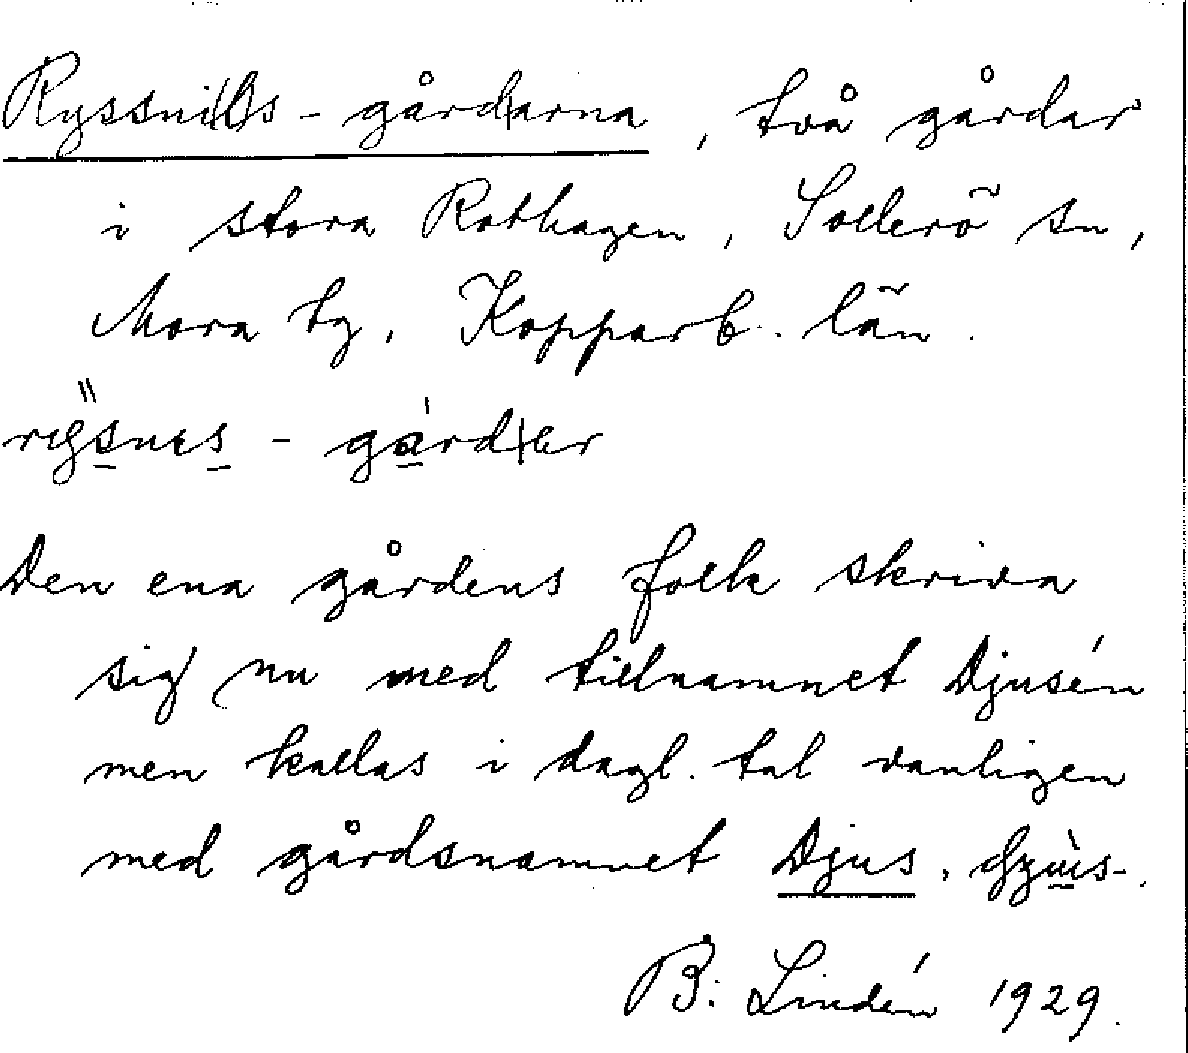 Ryssni(l)s-gård|arna, två gårdar
i stora Rothagen, Sollerö sn,
Mora tg, Kopparb. län.
gård|er
Den ena gårdens folk skriva
sig nu med tillnamnet Djusén
men kallas i dagl. tal vanligen
med gårdsnamnet Djus,
B. Lindén 1929.